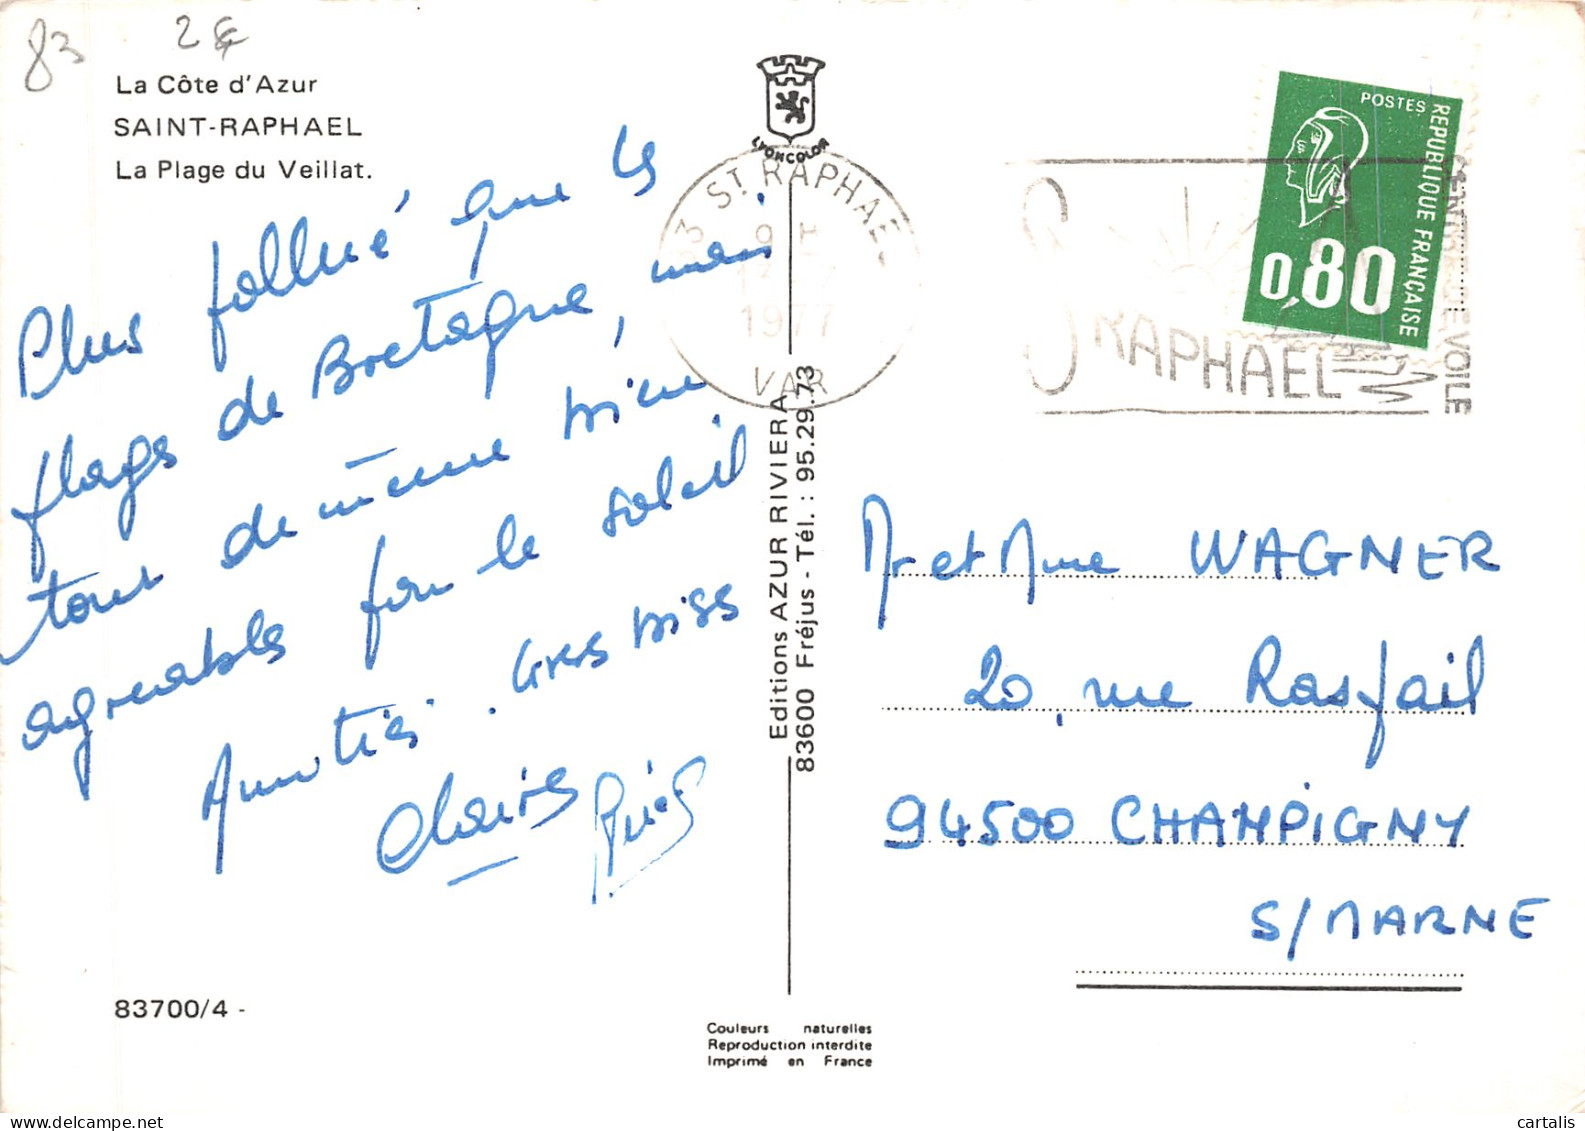 83
2 €
La Côte d'Azur
SAINT-RAPHAEL
La Plage du Veillat.
Plus pollué que les
plages de Bretagne, mais
tout de même bien
agréables pour le soleil
Amitiés. Gros biss
Claire
83700/4 -
LYONCOLOR
83 ST RAPHAEL
9 H
17 - 7
1977
VAR
Editions AZUR RIVIERA
83600 Fréjus - Tél. : 95.29.73
Couleurs naturelles
Reproduction interdite
Imprimé en France
ST RAPHAEL
DE VOILE
POSTES
REPUBLIQUE FRANÇAISE
0,80
Mr et Mme WAGNER
20, rue Raspail
94500 CHAMPIGNY
S/MARNE
cartalis